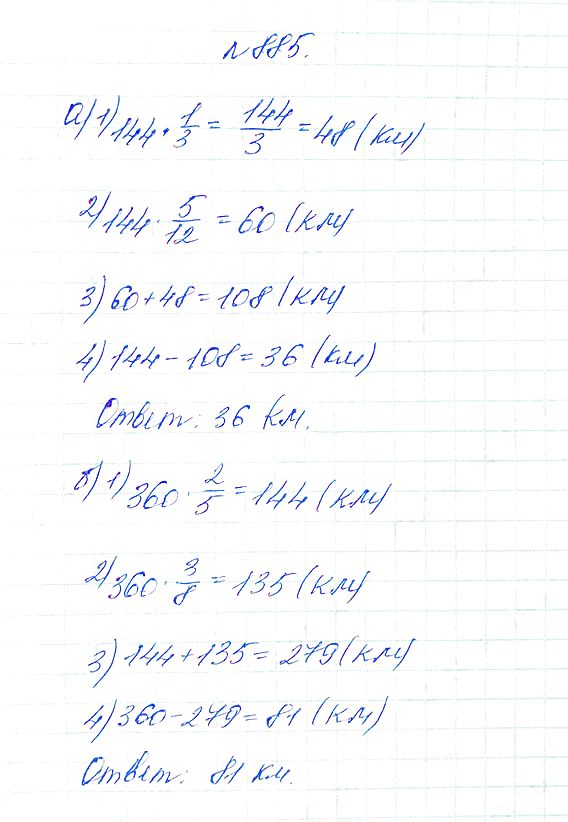 № 885.
а) 1) 144 · 1/3 = 144/3 = 48 (км)
2) 144 · 5/12 = 60 (км)
3) 60 + 48 = 108 (км)
4) 144 - 108 = 36 (км)
Ответ: 36 км.
б) 1) 360 · 2/5 = 144 (км)
2) 360 · 3/8 = 135 (км)
3) 144 + 135 = 279 (км)
4) 360 - 279 = 81 (км)
Ответ: 81 км.